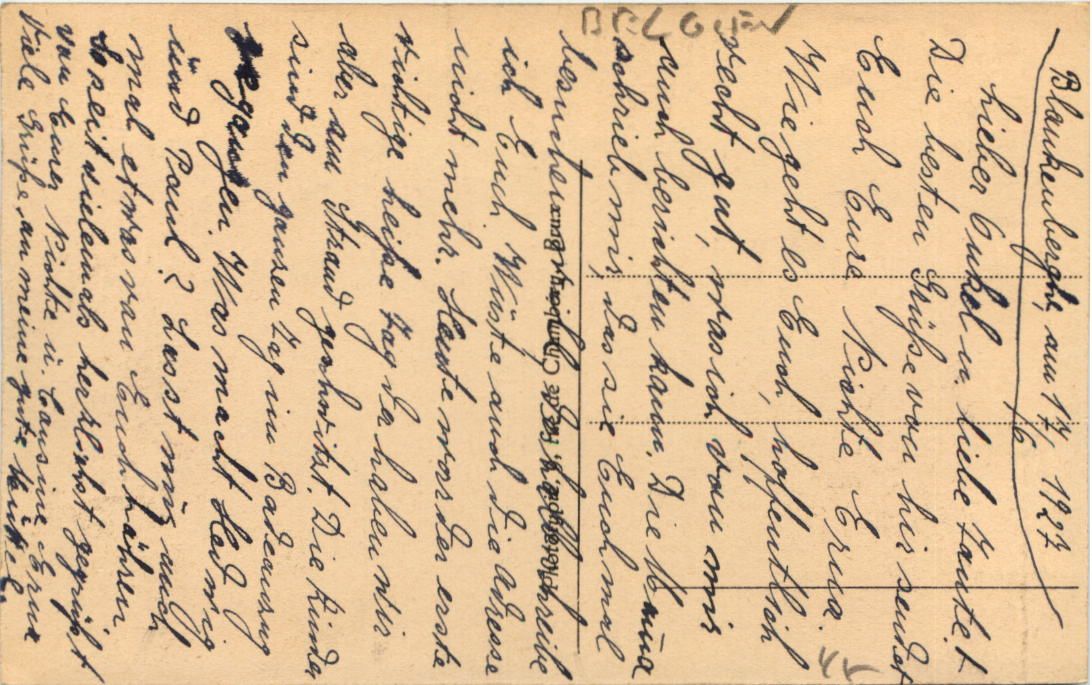 Blankenberghe, am 17/6 1927
Lieber Onkel u. liebe Tante!
Die besten Grüße von hir sendet
Euch Eure Nichte Erna.
Wie geht es Euch, hoffentlich
recht gut, was ich von mir
auch berichten kann. Die Mama
schrieb mir, das sie Euch mal
besuchen will, deshalb schreibe
ich Euch. Wüste auch die adresse
nicht mehr. Heute war der erste
richtige heiße Tag da haben wir
aber am Strand geschwitzt. Die Kinder
sind den ganzen Tag im Badeanzug
gegangen. Was macht Hedwig
und Paul? Lasst mich auch
mal etwas von Euch hören
So seit vielemals herzlichst gegrüßt
von Eurer Nichte u. Cousine Erna
Viele Grüße an meine gute Mutti
BELGIEN